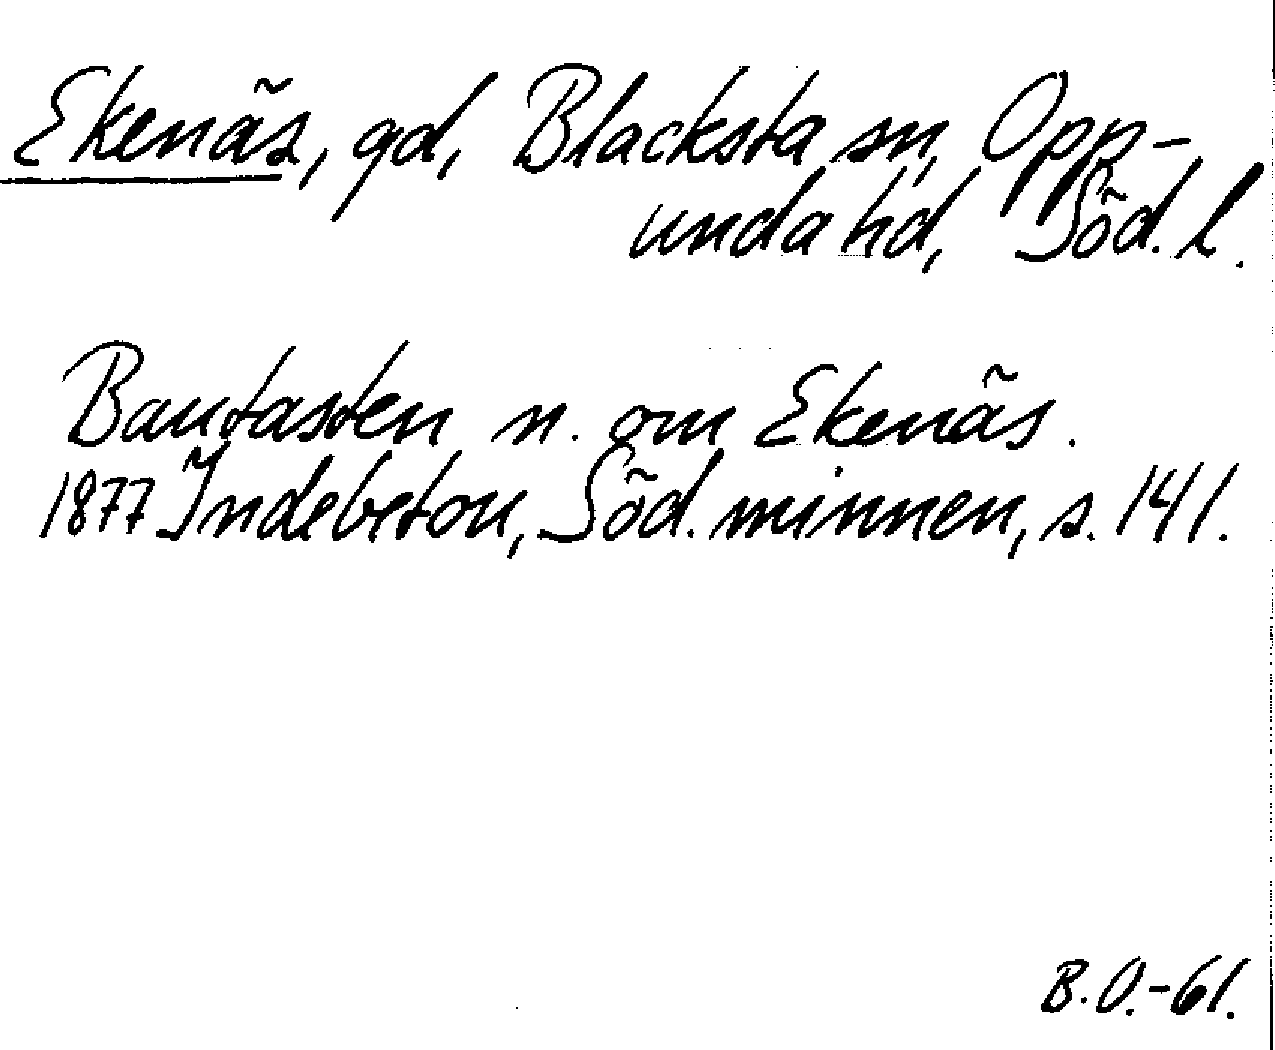 Ekenäs, gd, Blacksta sn, Opp-
unda hd, Söd. l.
Bautasten n. om Ekenäs.
1877 Indebetou, Söd. minnen, s. 141.
B.O.-61.